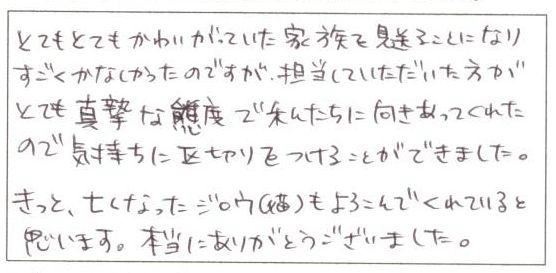 とてもとてもかわいがっていた家族を見送ることになり
すごくかなしかったのですが、担当していただいた方が
とても真摯な態度で私たちに向きあってくれた
ので気持ちに区切りをつけることができました。
きっと、亡くなったジロウ(猫)もよろこんでくれていると
思います。本当にありがとうございました。